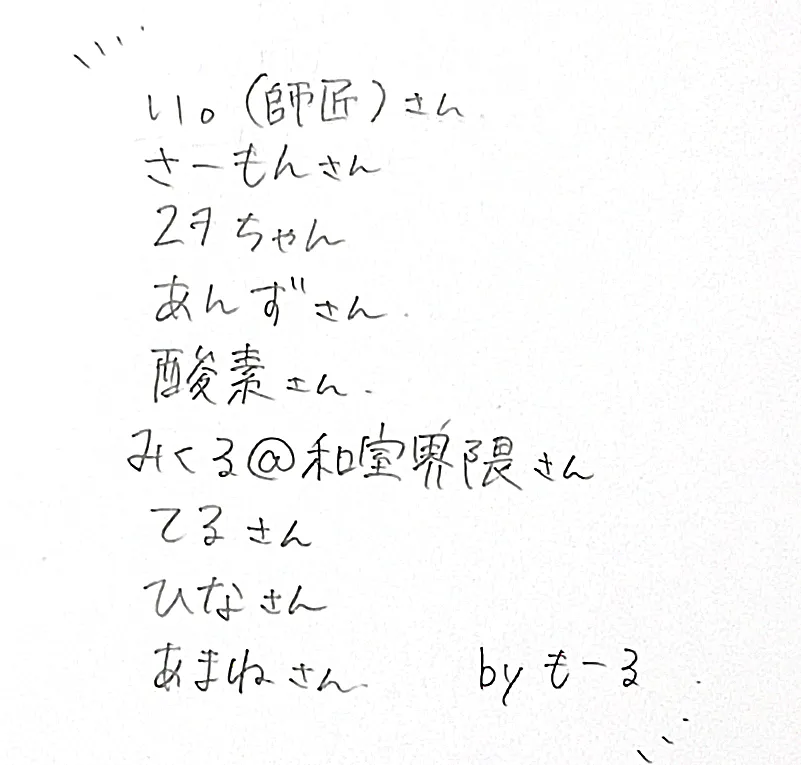 い。(師匠)さん
さーもんさん
2ヲちゃん
あんずさん
酸素さん
みくる@和室界隈さん
てるさん
ひなさん
あまねさん
by もーる